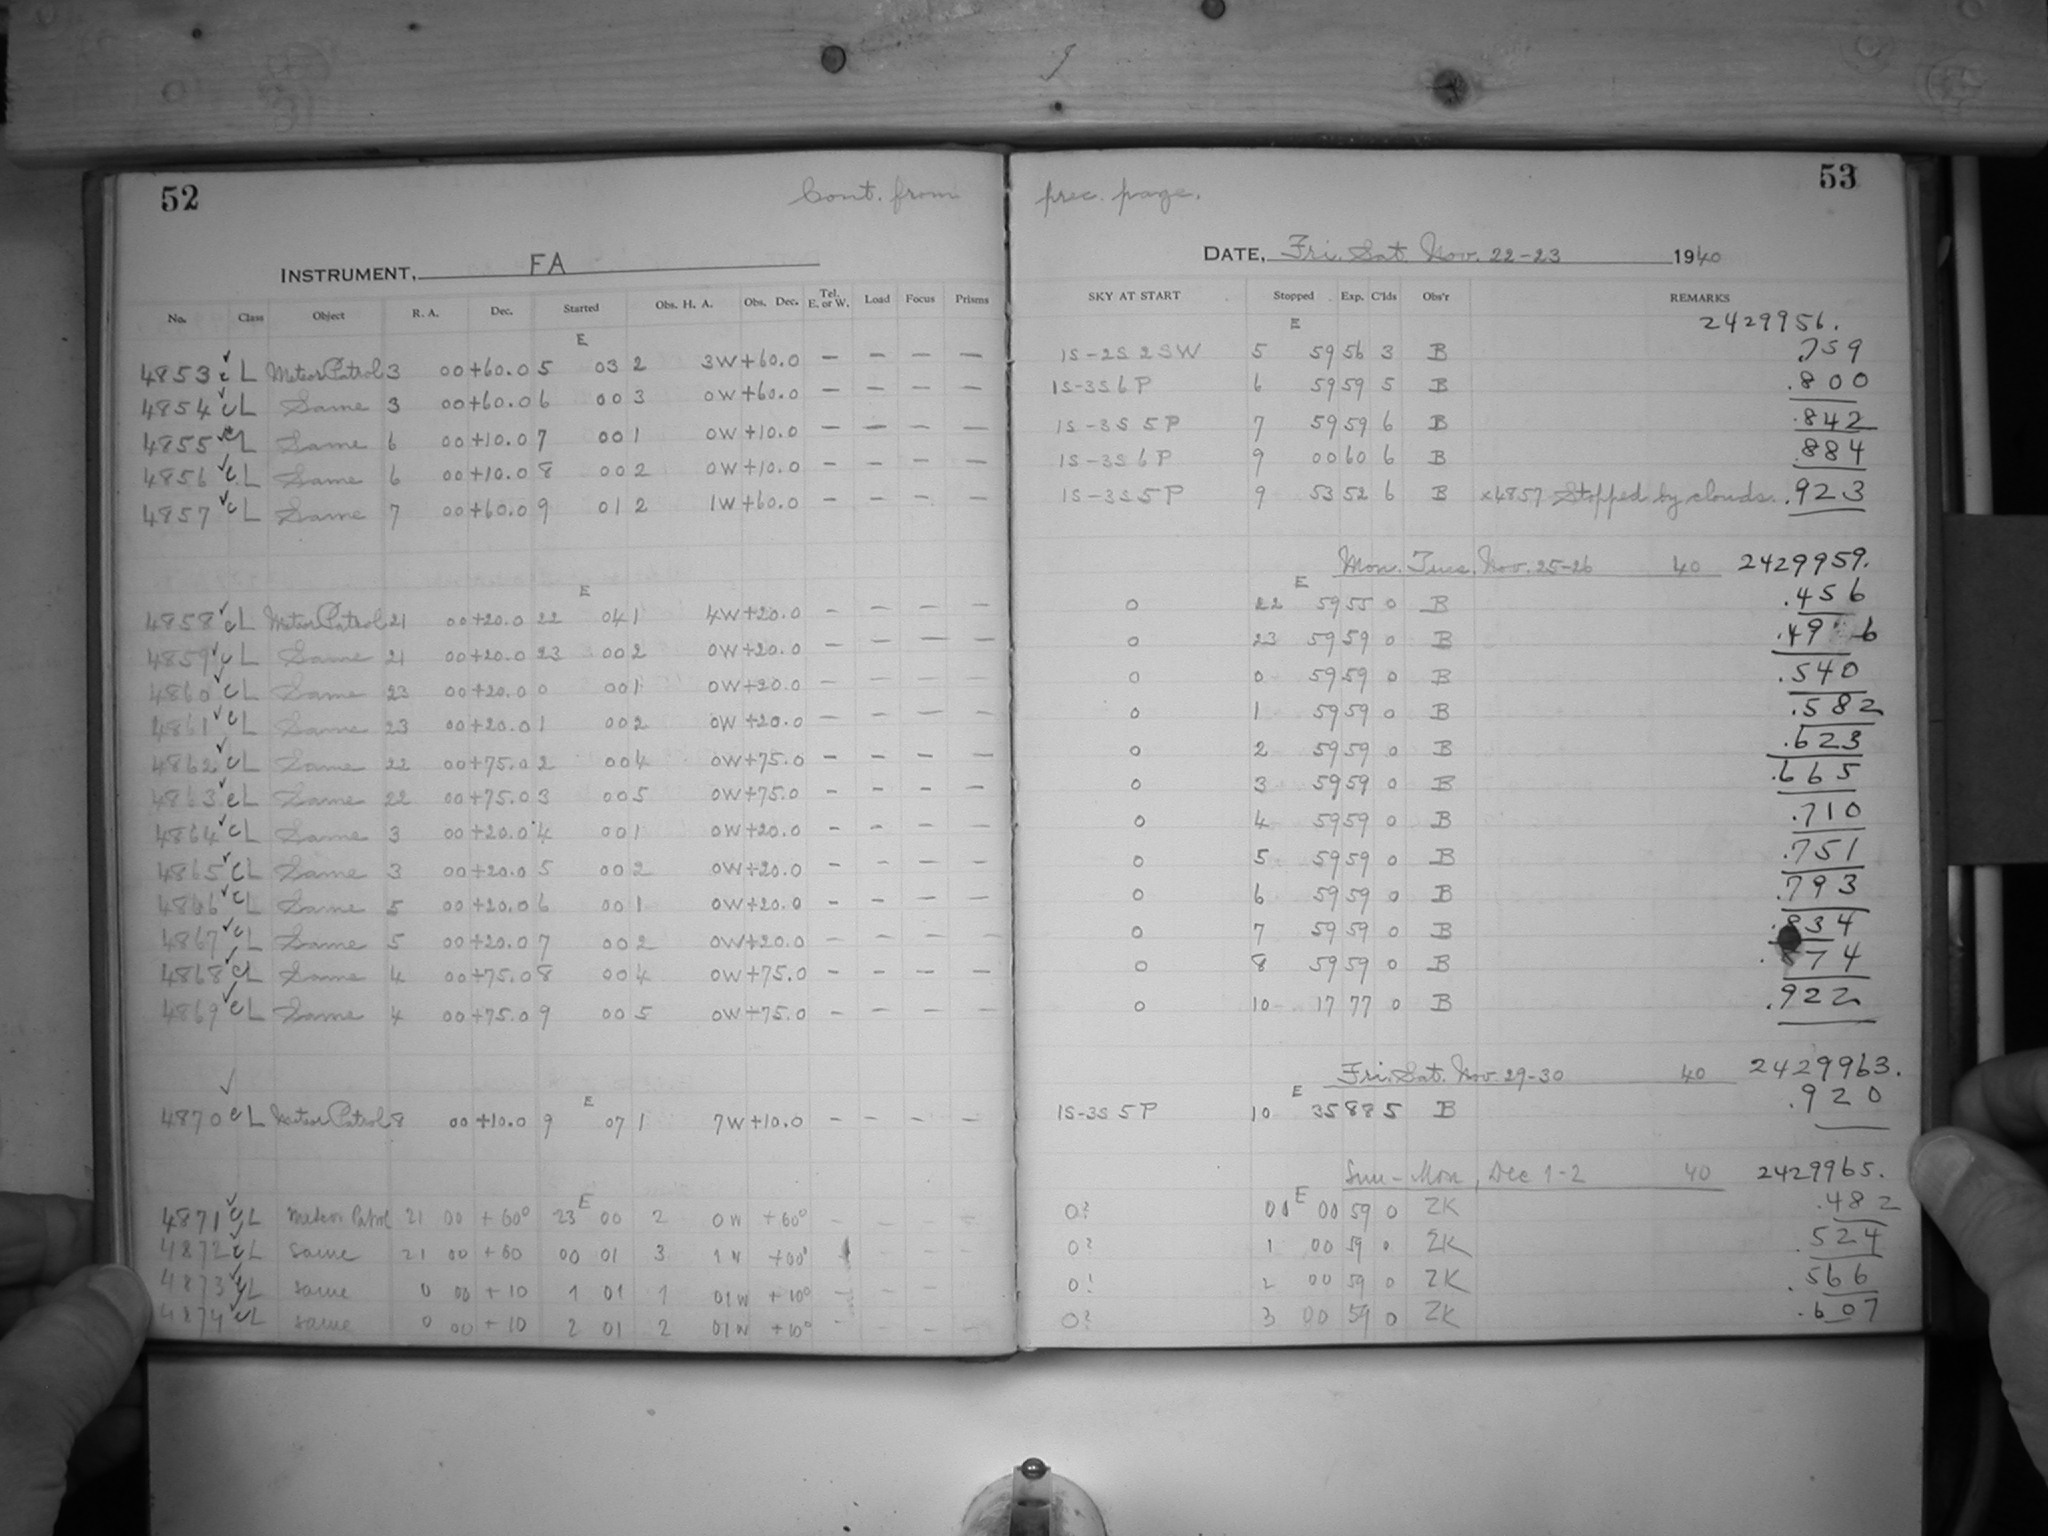 52 Cont. from prec. page. 53
INSTRUMENT, FA DATE, Fri. Sat. Nov. 22-23 1940
No. Class Object R. A. Dec. Started Obs. H. A. Obs. Dec. Tel. E. or W. Load Focus Prisms SKY AT START Stopped Exp. C'lds Obs'r REMARKS
2429956.
E E
4853 c L Meteor Patrol 3 00 +60.0 5 03 2 3W +60.0 — — — — 1S-2S 2SW 5 59 56 3 B .759
4854 c L Same 3 00 +60.0 6 00 3 0W +60.0 — — — — 1S-3S 6P 6 59 59 5 B .800
4855 L Same 6 00 +10.0 7 00 1 0W +10.0 — — — — 1S-3S 5P 7 59 59 6 B .842
4856 c L Same 6 00 +10.0 8 00 2 0W +10.0 — — — — 1S-3S 6P 9 00 60 6 B .884
4857 c L Same 7 00 +60.0 9 01 2 1W +60.0 — — — — 1S-3S 5P 9 53 52 6 B x4857 Stopped by clouds. .923
Mon. Tues. Nov. 25-26 40 2429959.
E E
4858 c L Meteor Patrol 21 00 +20.0 22 04 1 4W +20.0 — — — — 0 22 59 55 0 B .456
4859 c L Same 21 00 +20.0 23 00 2 0W +20.0 — — — — 0 23 59 59 0 B .49 6
4860 c L Same 23 00 +20.0 0 00 1 0W +20.0 — — — — 0 0 59 59 0 B .540
4861 c L Same 23 00 +20.0 1 00 2 0W +20.0 — — — — 0 1 59 59 0 B .582
4862 c L Same 22 00 +75.0 2 00 4 0W +75.0 — — — — 0 2 59 59 0 B .623
4863 c L Same 22 00 +75.0 3 00 5 0W +75.0 — — — — 0 3 59 59 0 B .665
4864 c L Same 3 00 +20.0 4 00 1 0W +20.0 — — — — 0 4 59 59 0 B .710
4865 c L Same 3 00 +20.0 5 00 2 0W +20.0 — — — — 0 5 59 59 0 B .751
4866 c L Same 5 00 +20.0 6 00 1 0W +20.0 — — — — 0 6 59 59 0 B .793
4867 c L Same 5 00 +20.0 7 00 2 0W +20.0 — — — — 0 7 59 59 0 B .834
4868 c L Same 4 00 +75.0 8 00 4 0W +75.0 — — — — 0 8 59 59 0 B .874
4869 c L Same 4 00 +75.0 9 00 5 0W +75.0 — — — — 0 10 17 77 0 B .922
Fri. Sat. Nov 29-30 40 2429963.
E E
4870 c L Meteor Patrol 8 00 +10.0 9 07 1 7W +10.0 — — — — 1S-3S 5P 10 35 88 5 B .920
Sun - Mon, Dec 1-2 40 2429965.
E E
4871 L Meteor Patrol 21 00 +60° 23 00 2 0W +60° — — — — 0? 00 00 59 0 ZK .482
4872 c L same 21 00 +60 00 01 3 1W +60° — — — 0? 1 00 59 0 ZK .524
4873 L same 0 00 +10 1 01 1 01W +10° — — — 0! 2 00 59 0 ZK .566
4874 c L same 0 00 +10 2 01 2 01W +10° — — — — 0? 3 00 59 0 ZK .607